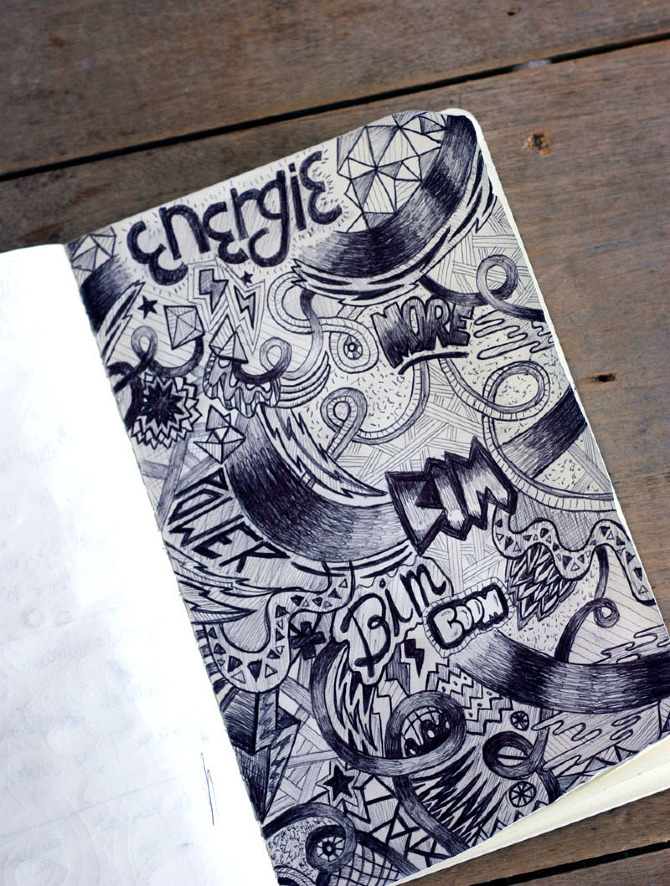 energie
MORE
BIM
POWER
Bim
BOOM